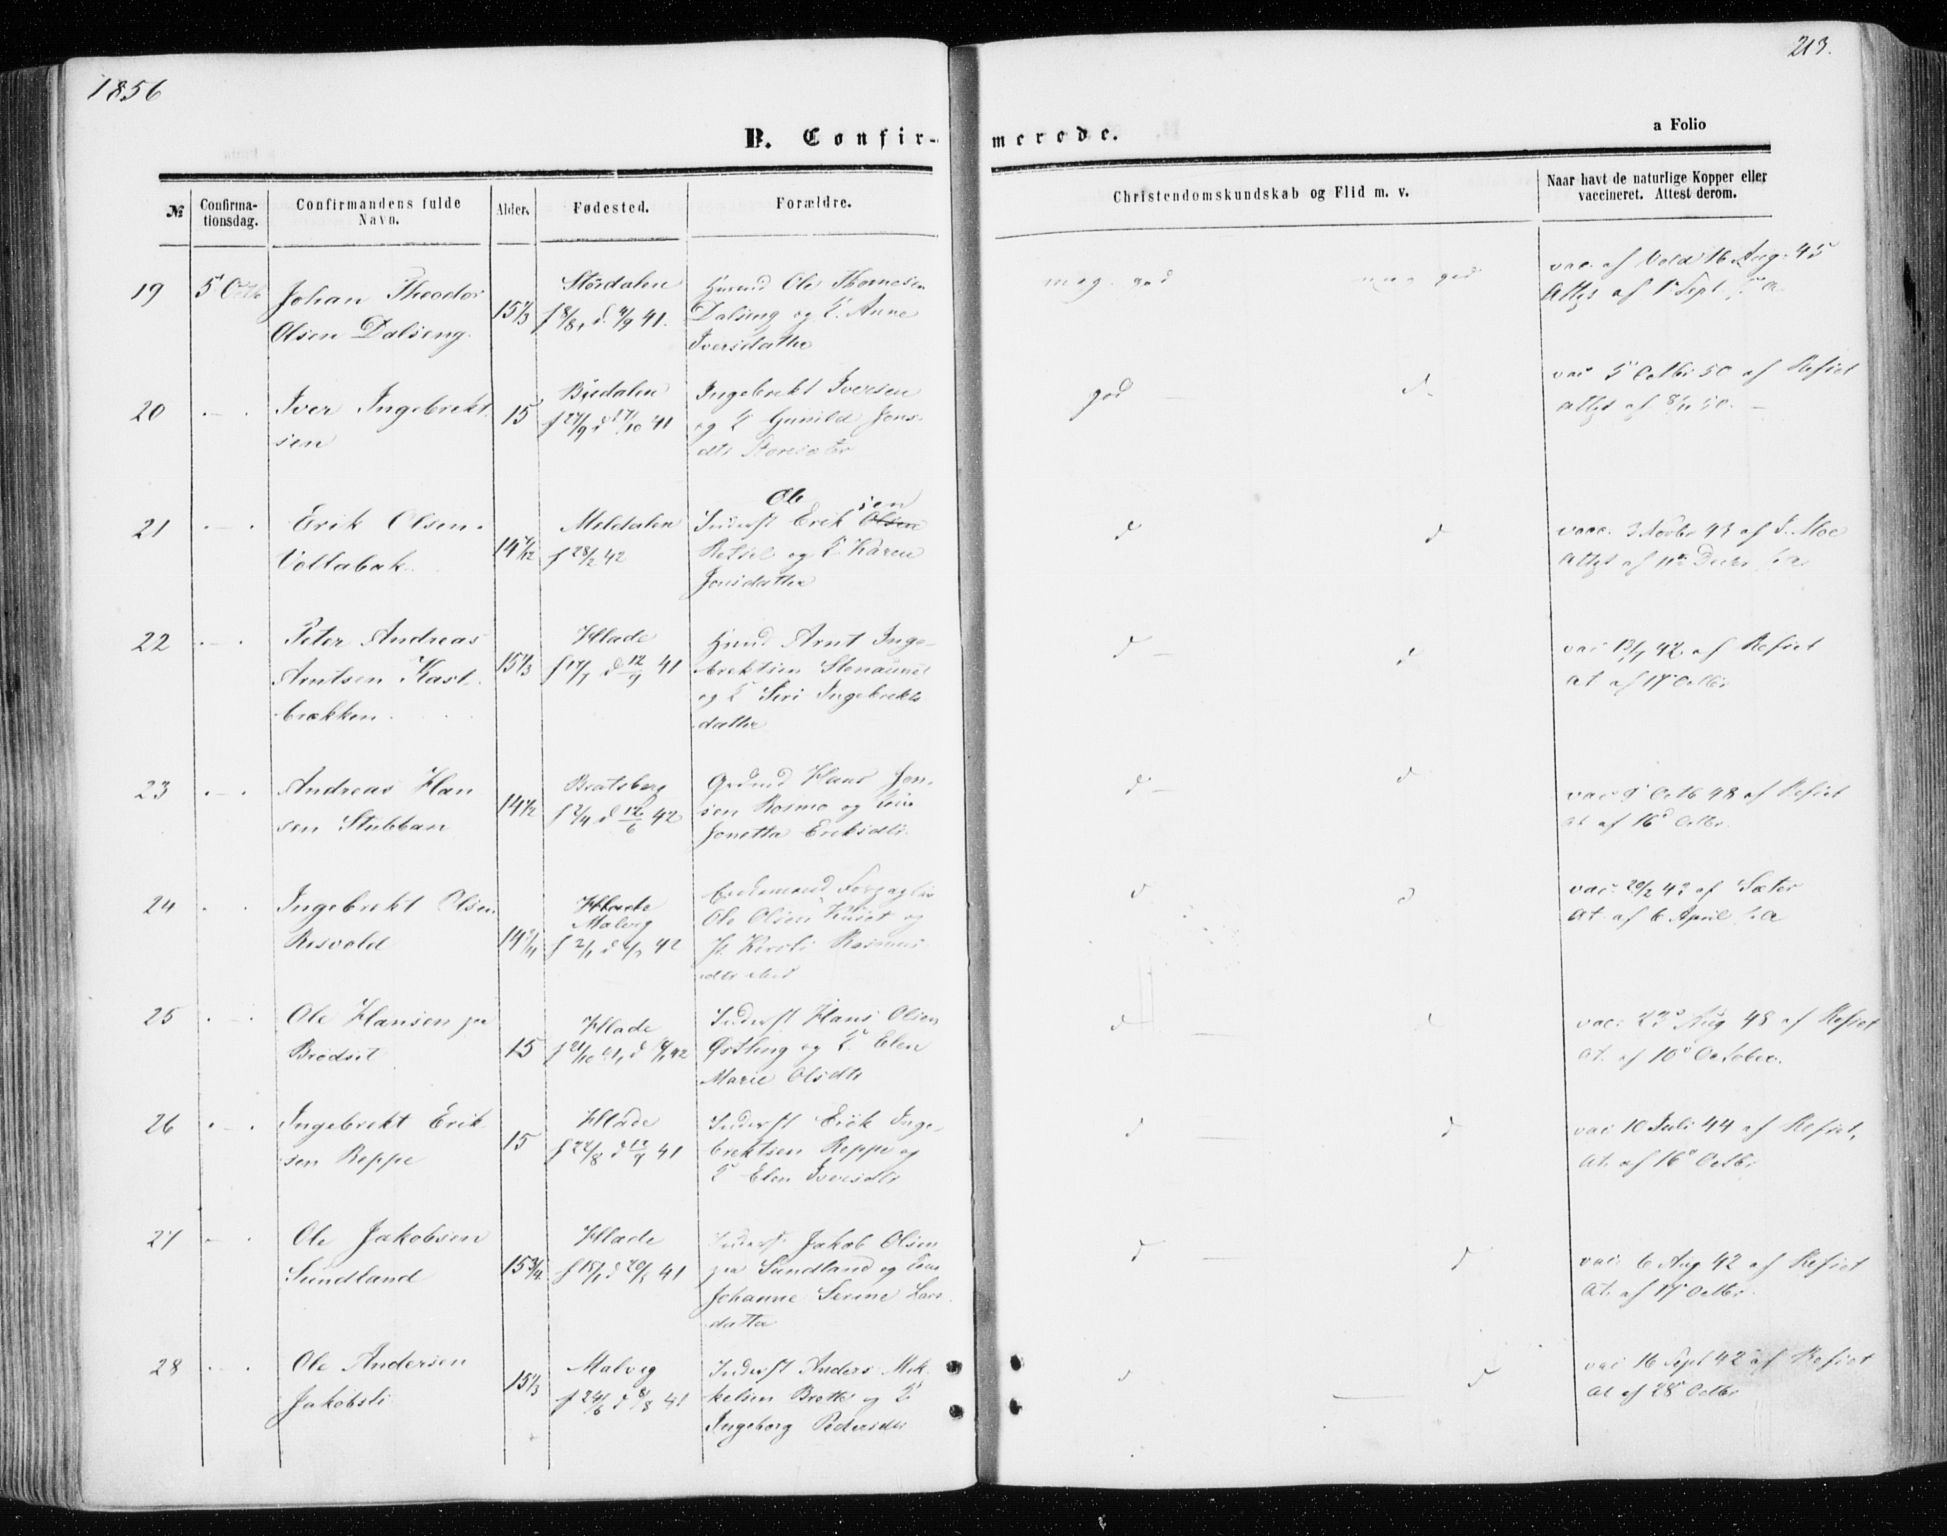 1856
213.
B. Confir-
merede.
a Folio
№
Confirma-
tionsdag.
Confirmandens fulde
Navn.
Alder.
Fødested.
Forældre.
Christendomskundskab og Flid m. v.
Naar havt de naturlige Kopper eller
vaccineret. Attest derom.
19
5 Octb
Johan Theodor
Olsen Dalseng.
15 1/3
Stördalen
f 8/8, d. 41.
Ole Thomesen
Dalseng og P. Anne
Iversdatter
meg. god
meg god
vac. af Vold 16 Aug. 45
Attest af 1 Sept. s. a.
20
Iver Ingebrekt
sen
15
Budalen
f 27/9 d 17/10 41
Ingebrekt Iversen
og P Gunild Jons
dtr
god
d.
vac 5 Octbr 50 af Refset
attest af 8/11 50.
21
Erik Olsen
Voltabak.
14 7/12
Meldalen
f 28/2 42
Inderst Erik Olsen
Ole sen
og P Karen
Jonsdatter
d
d
vacc. 3 Novbr 43 af J. Moe
Attest af 11 Decbr s. a.
22
Peter Andreas
Arntsen Kast
brækken
15 1/3
Hlade
f 17/7 d 12/9 41
Arnt Inge-
brektsen Stenaune
og P Siri Ingebrekts
datter
d
d
vac 13/7 42 af Refset
At af 17 Octbr
23
Andreas Han
sen Stubban
14 1/2
Bratsberg
f 2/4 d 12/6 42
Grdmd Hans Jon-
sen Rosmo og
Jonetta Eriksdtr
d
d
vac 9 Octb 48 af Refset
At af 16 Octbr
24
Ingebrekt Olsen
Resvold
Hlade
Malvig
42
Ole Olsen og
Kirsti Rasmus
dtr
d
d
vac. 20/2 43 af Sæter
At. af 6 April s. a
25
Ole Hansen
Brødset
15
Hlade
Inderst Hans Olsen
Østling og P. Elen
Marie Olsdtr
d
d
vac: 23 Aug 48 af Refset
At. af 10 October.
26
Ingebrekt Erik
sen Reppe
15
Hlade
f 22/8 d 12/9 41
Inderst Erik Inge-
brektsen Reppe og
P Elen Iversdtr
d
d
vac 10 Juli 44 af Refset,
At. af 16 Octbr
27
Ole Jakobsen
Sundland
15 3/4
Hlade
41
Inderst Jakob Olsen
Sundland og
Johanne Serine Lars
datter
d
d
vac. 6 Aug 42 af Refset
At. af 17 Octbr.
28
Ole Andersen
Jakobsli
15 1/3
Malvig
f 24/6 d 8/8 41
Inderst Anders Mik
kelsen Bratt og P
Ingeborg Pedersdtr
d
d
vac 16 Sept 42 af Refset
At af 28 Octbr